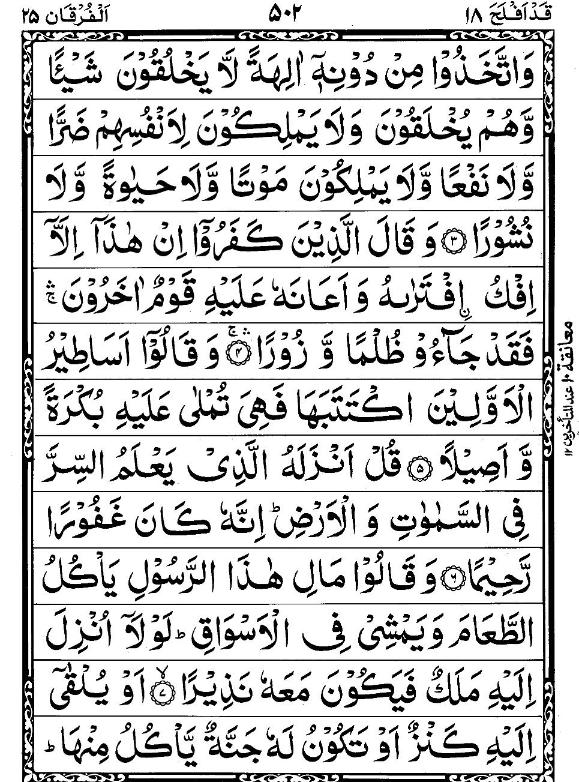 قَدْ اَفْلَحَ ١٨
٥٠٢
اَلْفُرْقَان ٢٥
وَاتَّخَذُوْا مِنْ دُوْنِهٖۤ اٰلِهَةً لَّا يَخْلُقُوْنَ شَيْـًٔا
وَّهُمْ يُخْلَقُوْنَ وَلَا يَمْلِكُوْنَ لِاَنْفُسِهِمْ ضَرًّا
وَّلَا نَفْعًا وَّلَا يَمْلِكُوْنَ مَوْتًا وَّلَا حَيٰوةً وَّلَا
نُشُوْرًا ﴿٣﴾ وَقَالَ الَّذِيْنَ كَفَرُوْۤا اِنْ هٰذَاۤ اِلَّاۤ
اِفْكُ ۨافْتَرٰىهُ وَاَعَانَهٗ عَلَيْهِ قَوْمٌ اٰخَرُوْنَ ۛۚ
فَقَدْ جَآءُوْ ظُلْمًا وَّ زُوْرًا ۛۚ ﴿٤﴾ وَقَالُوْۤا اَسَاطِيْرُ
الْاَوَّلِيْنَ اكْتَتَبَهَا فَهِىَ تُمْلٰى عَلَيْهِ بُكْرَةً
وَّ اَصِيْلًا ﴿٥﴾ قُلْ اَنْزَلَهُ الَّذِىْ يَعْلَمُ السِّرَّ
فِى السَّمٰوٰتِ وَ الْاَرْضِ ؕ اِنَّهٗ كَانَ غَفُوْرًا
رَّحِيْمًا ﴿٦﴾ وَقَالُوْا مَالِ هٰذَا الرَّسُوْلِ يَاْكُلُ
الطَّعَامَ وَيَمْشِىْ فِى الْاَسْوَاقِ ؕ لَوْلَاۤ اُنْزِلَ
اِلَيْهِ مَلَكٌ فَيَكُوْنَ مَعَهٗ نَذِيْرًا ۙ ﴿٧﴾ اَوْ يُلْقٰۤى
اِلَيْهِ كَنْزٌ اَوْ تَكُوْنُ لَهٗ جَنَّةٌ يَّاْكُلُ مِنْهَا ؕ
معانقة ١٠ عند المتأخرين ١٢